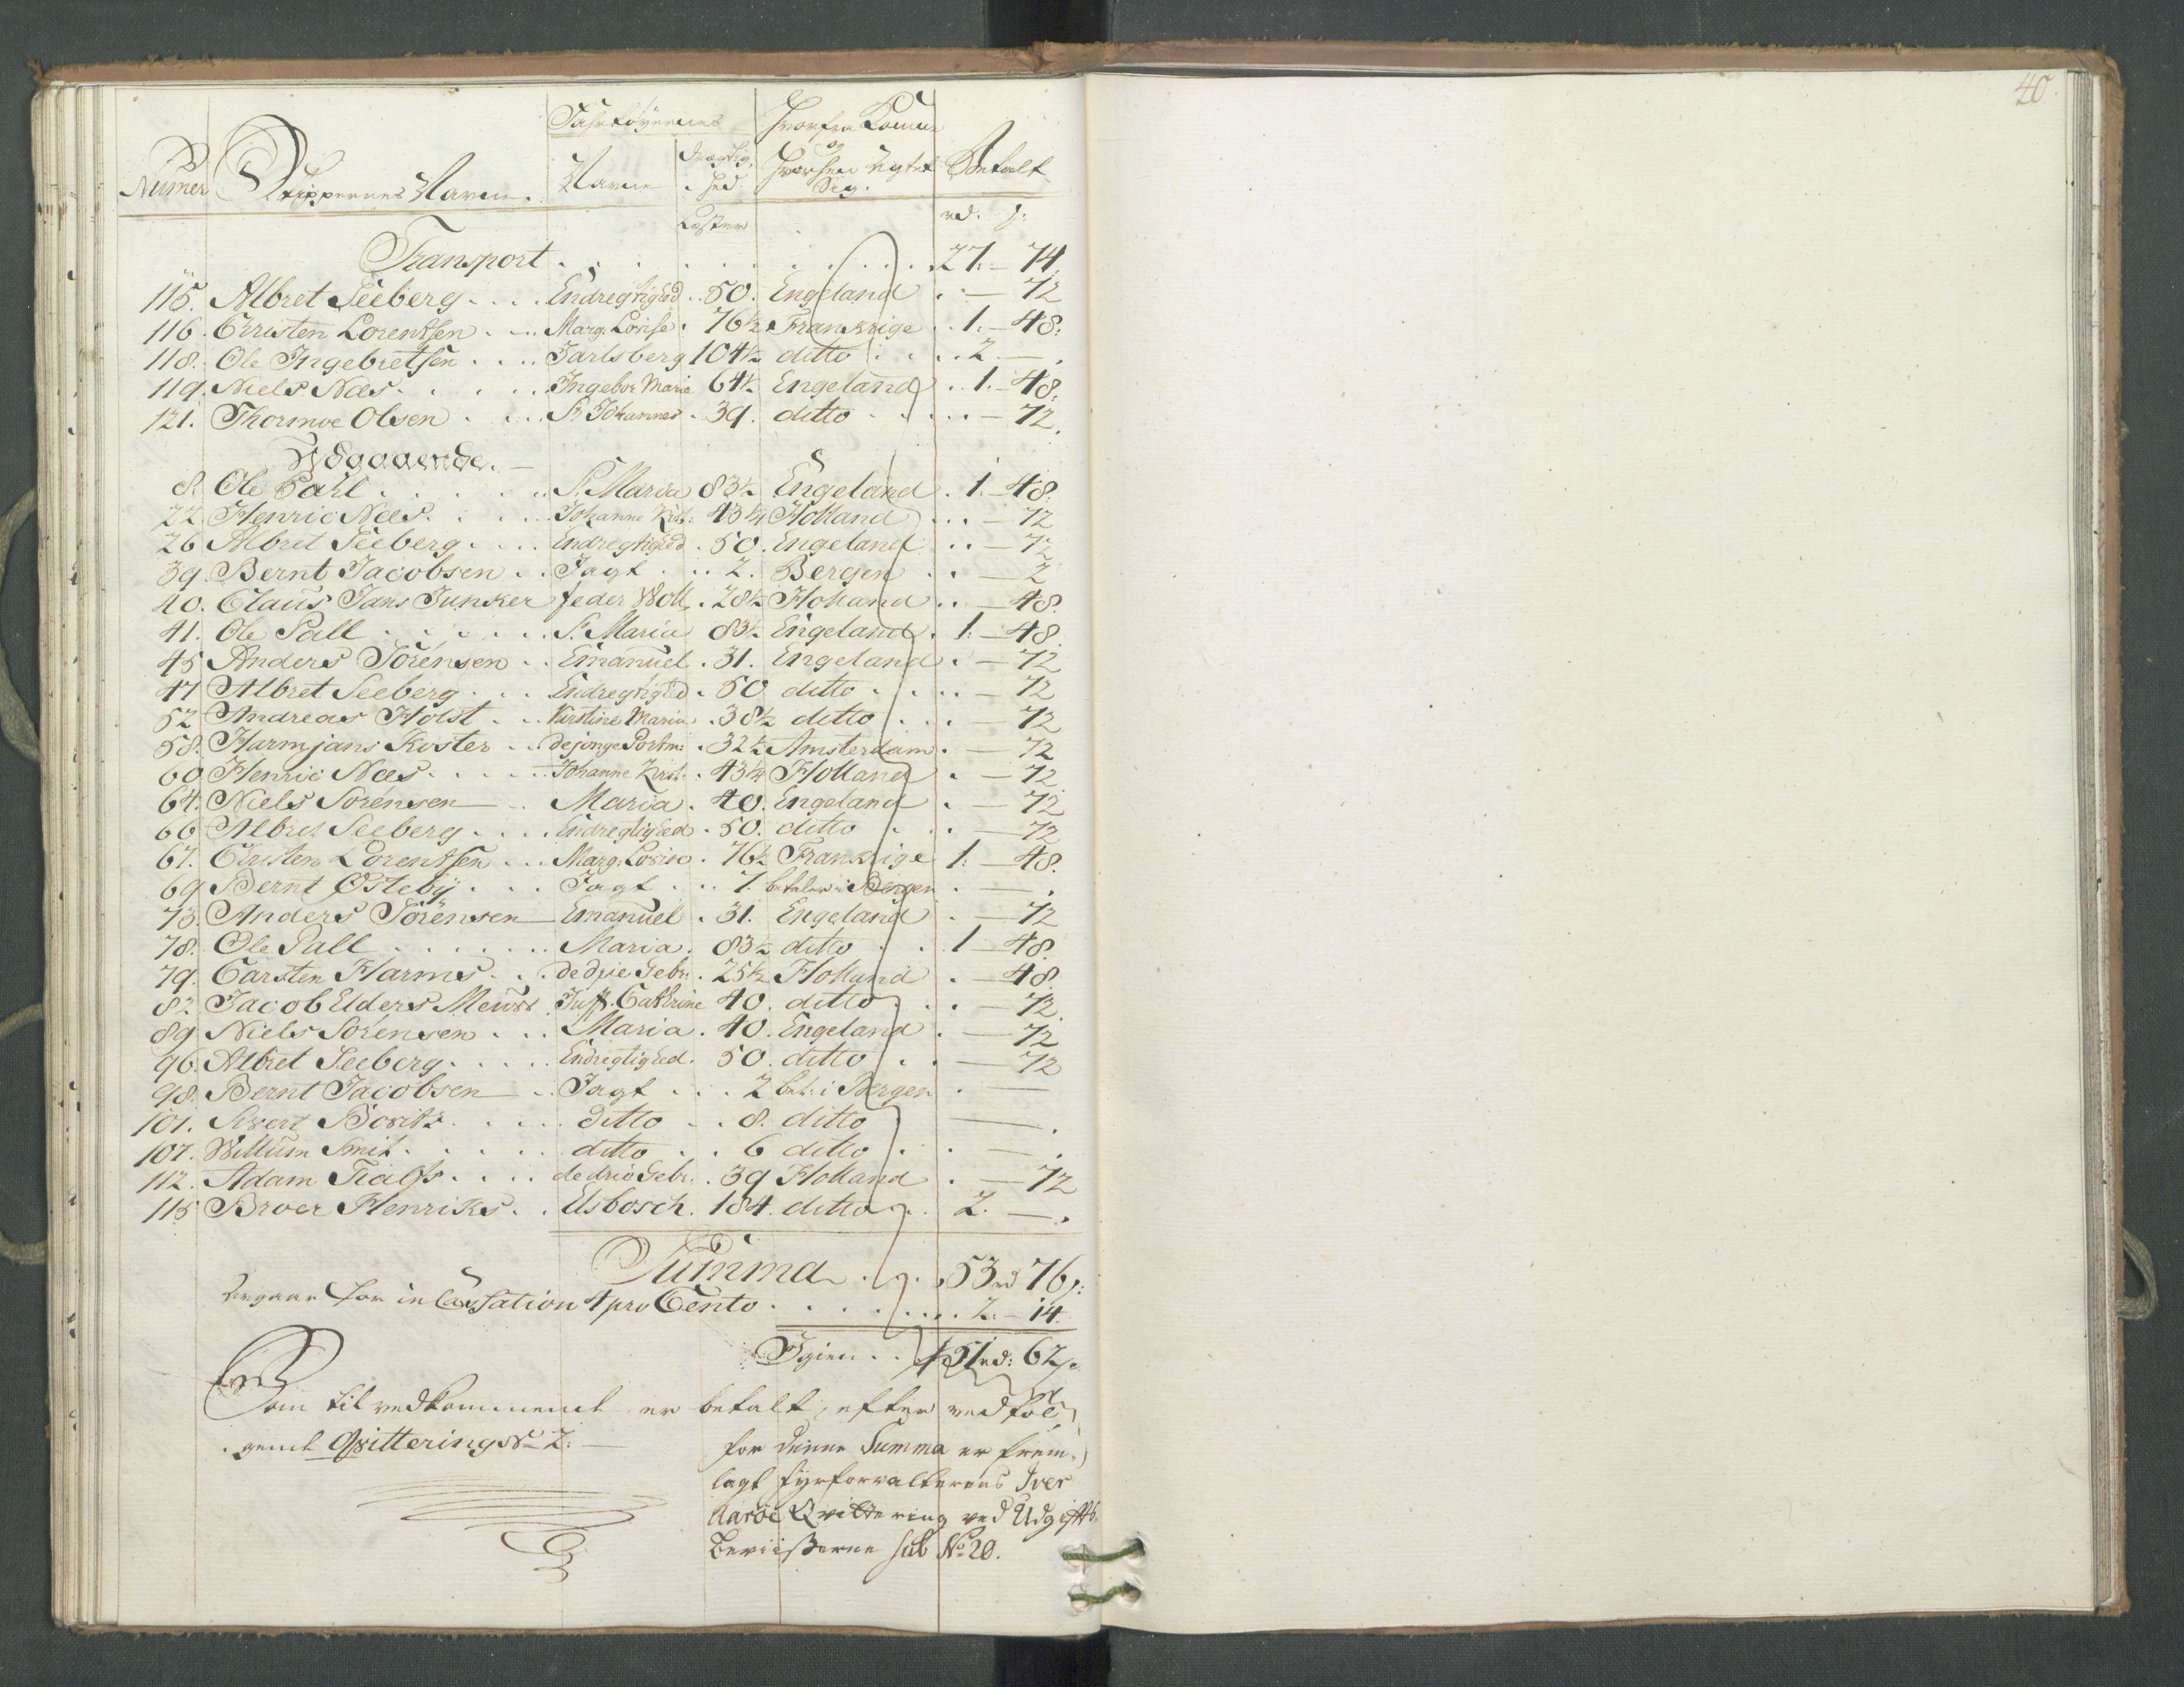 40
Fahrtöyernes Hvorfra kommen
Numer Skippernes Navne. Navne Drægtighed og Hvorhen Agtet Sig. Betalt
Læster rd. s:
Transport . . . . . . . . 27. - 74.
115. Albret Seeberg . . . Endregtighed . 50. Engeland . - 72
116. Christen Lorentsen . . . Marg. Lovise . 76½ Frankrige . 1. - 48.
118. Ole Ingebretsen . . . Jarlsberg 104½ ditto . . . 2 - .
119. Niels Næs . . . . Ingebor Maria 64½ Engeland . 1. - 48.
121. Thormoe Olsen . . . St Johannes . 39. ditto . . . - 72.
Udgaaende. -
8. Ole Pahl . . . . . S. Maria 83½ Engeland . 1. - 48.
22. Henric Næs . . . . Johanne Krist: 43¼ Holland . . . - 72
26 Albret Seeberg . . . Endregtighed . 50. Engeland . . - 72
39. Bernt Jacobsen . . Jagt . . . 2. Bergen . . - 2
40. Claus Jans Junker feder Woll . 28½ Holland . . - 48.
41. Ole Pall . . . . . S. Maria 83½ Engeland . 1. - 48.
45 Anders Sörensen . . Emanuel . 31. Engeland . - 72
47 Albret Seeberg . . . Endregtighed . 50 ditto . . . . - 72
52 Andreas Holst . . . Kirstine Maria . 38½ ditto . . . - 72
58. Harmjans Koster . . de jonge Portm: . 32½ Amsterdam . - 72
60 Henric Næs . . . . Johanne Krist. . 43¼ Holland . - 72
64. Niels Sörensen . . Maria . 40. Engeland . - 72
66 Albret Seeberg . . . Endregtighed . 50. ditto . . - 72
67. Christen Lorentsen . . . Marg: Lovise . 76½ Frankrige 1. - 48.
69 Bernt Östebÿ . . . Jagt . . . 7. betaler i Bergen . - .
73. Anders Sörensen Emanuel . 31. Engeland . - 72
78. Ole Pall . . . . . Maria . 83½ ditto . . 1 - 48.
79. Carsten Harms . . de drie Gebr: . 25½ Holland . - 48.
82 Jacob Elders Meust Juff. Cathrine 40. ditto . . . - 72.
89 Niels Sörensen . . . Maria . 40. Engeland . - 72
96. Albret Seeberg . . . . Endregtighed . 50. ditto . . - 72
98. Bernt Jacobsen . . Jagt . . . 2 bet: i Bergen . -
101. Sivert . . . . ditto . . 8. ditto - .
107. Willum Smit . . . . . ditto . . 6 ditto . . - .
112. Adam . . . . de drie Gebr. . 39 Holland . - 72
115 Broer Henriks . . Elsbosch . 184. ditto . . 2. - .
Summa . . . 53 rd 76 s:
Afgaar for in Cassation 4 pro Cento . . . . . . . . 2. - 14.
Igien . . 51 rd: 62 s.
Som til vedkommende er betalt, efter ved föl
gende Qvittering No 2: -
for denne Summa er frem
lagt fyrforvalterens Iver
Aaröe Qvittering ved Udgifts
beviisserne sub No 20.